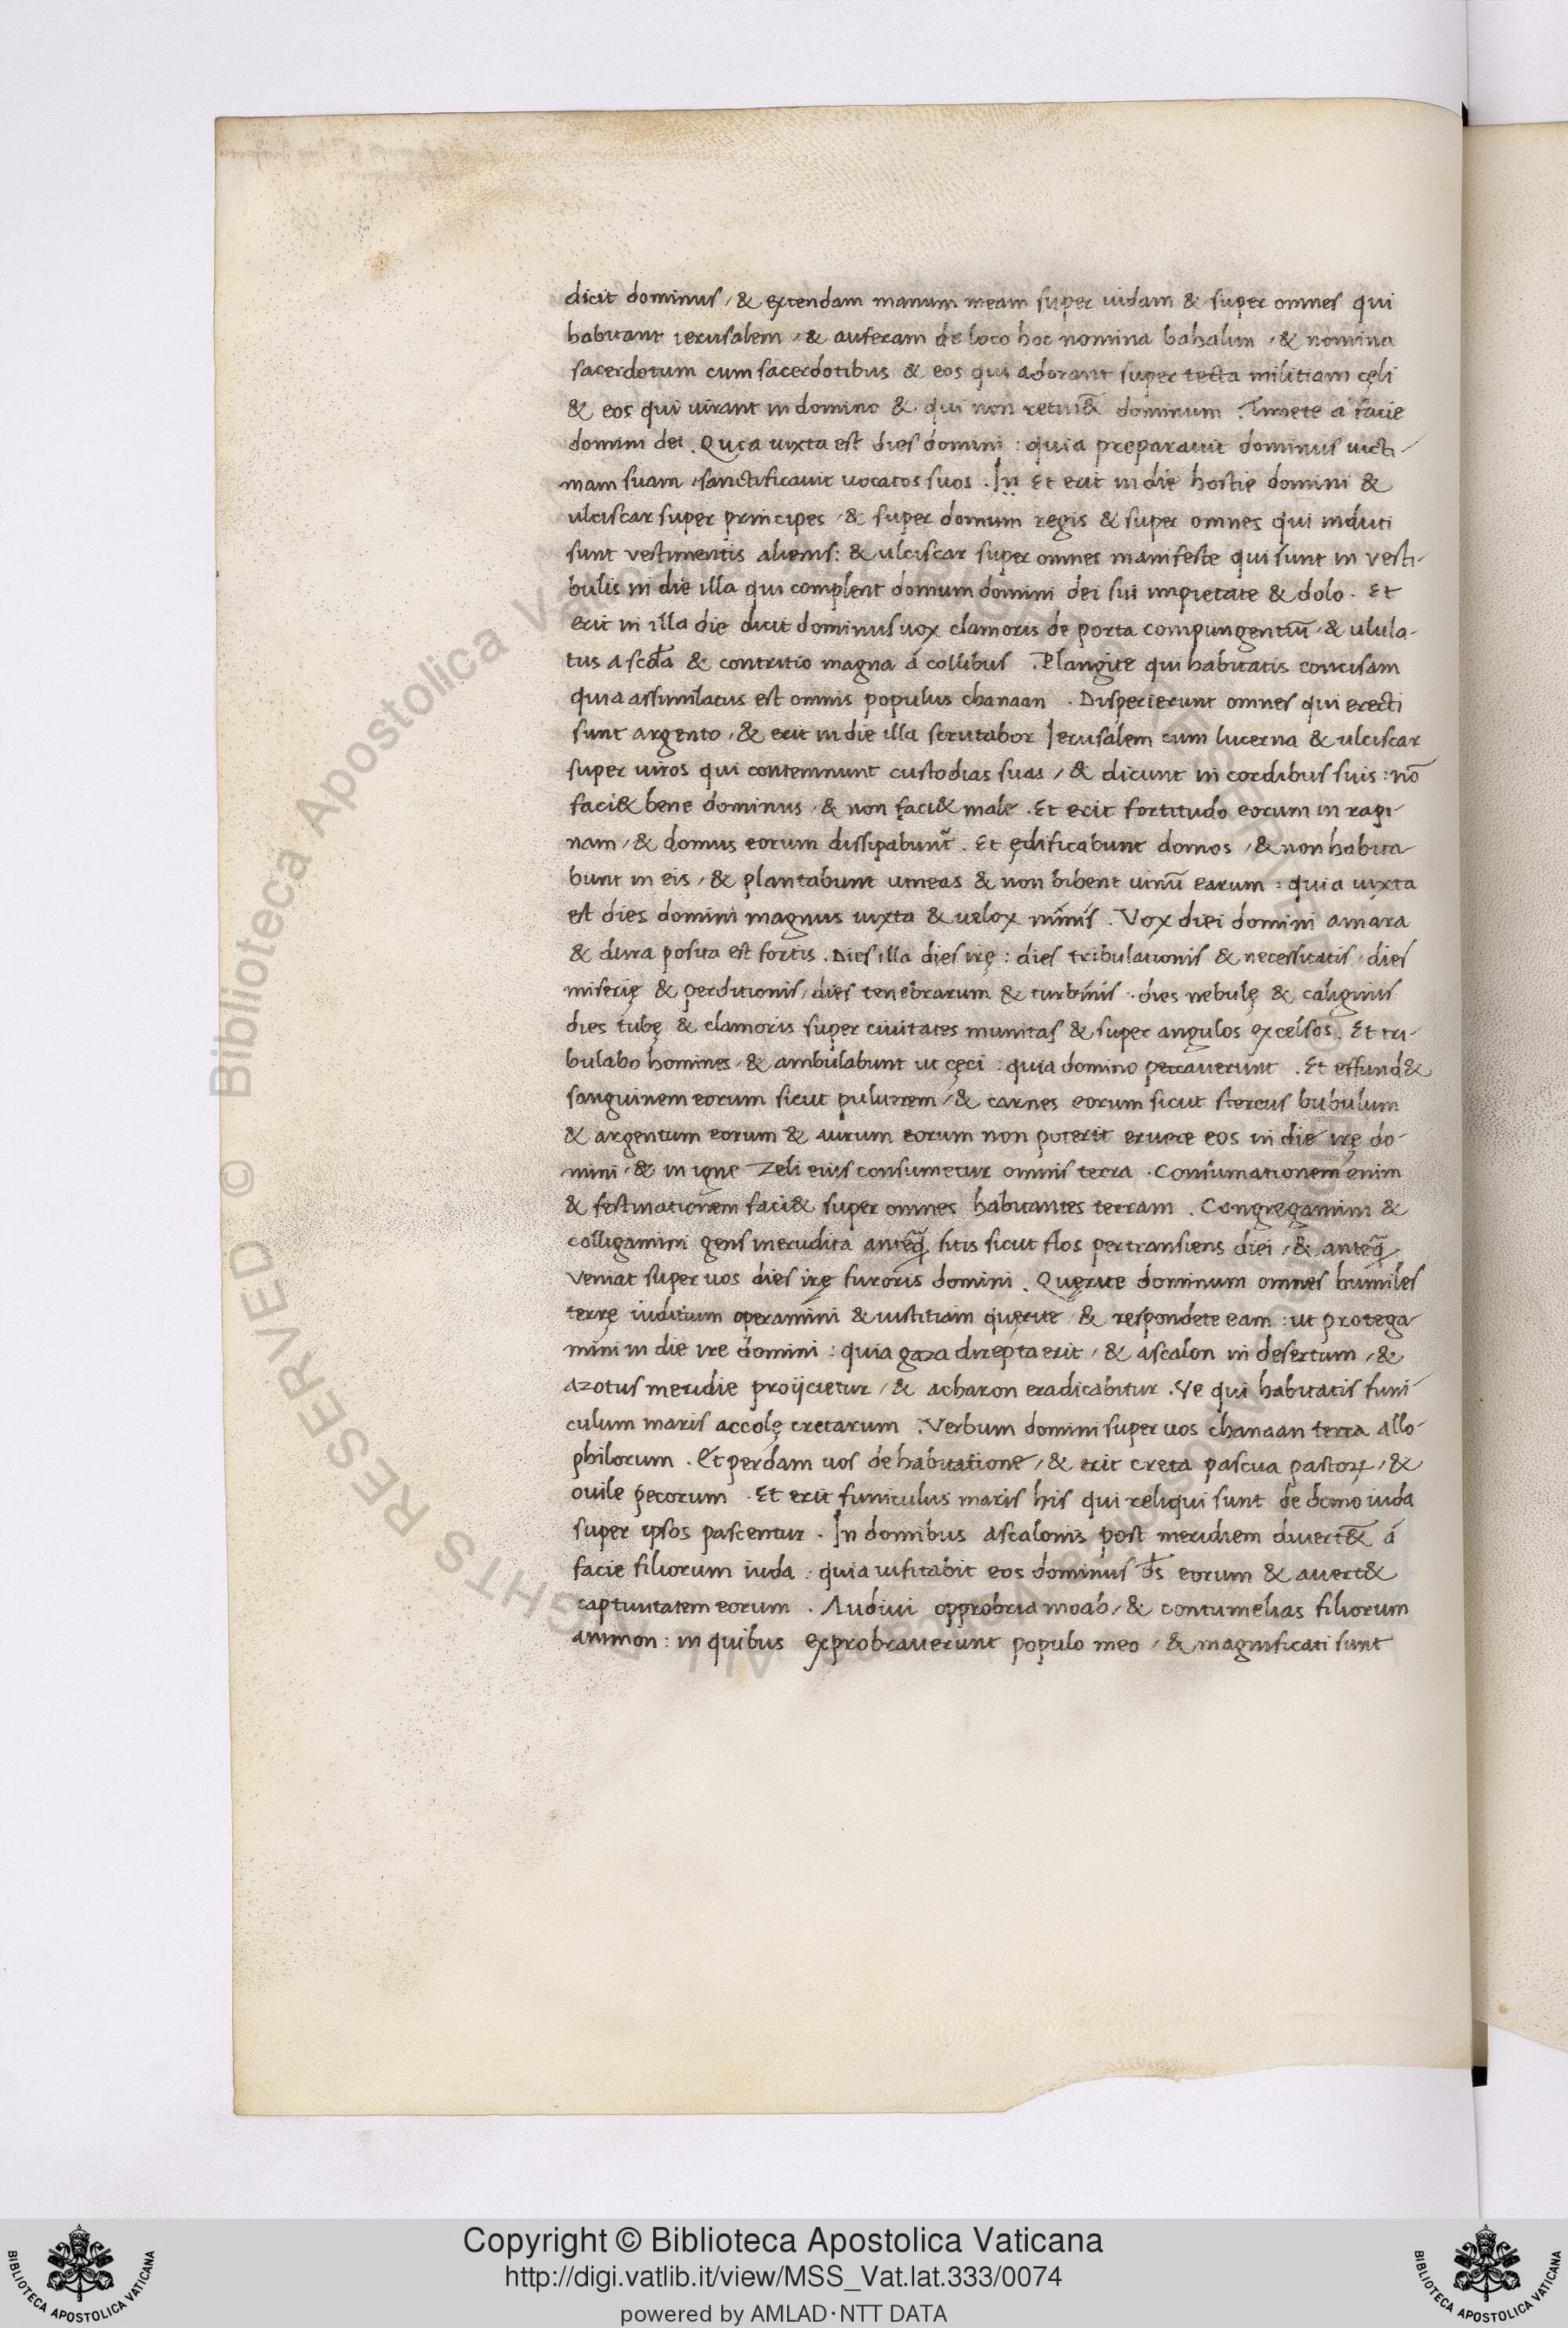 dicit dominus, & extendam manum meam super iudam & super omnes qui
habitant ierusalem, & auferam de loco hoc nomina bahalim, & nomina
sacerdotum cum sacerdotibus & eos qui adorant super tecta militiam cęli
& eos qui iurant in domino & qui non
dominum. Timete a facie
domini dei. Quia iuxta est dies domini: quia preparauit dominus uicti-
mam suam, sanctificauit uocatos suos. In Et erit in die hostie domini &
ulciscar super principes, & super domum regis & super omnes qui induti
sunt vestimentis alienis: & ulciscar super omnes manifeste qui sunt in vesti-
bulis in die illa qui complent domum domini dei sui impietate & dolo. Et
erit in illa die dicit dominus uox clamoris de porta compungentiū, & ulula-
tus a scd̄a & contritio magna á collibus. Plangite qui habitatis concisam
quia assimilatus est omnis populus chanaan. Disperierunt omnes qui erecti
sunt argento, & erit in die illa scrutabor Ierusalem cum lucerna & ulciscar
super uiros qui contemnunt custodias suas, & dicunt in cordibus suis: nō
faci& bene dominus, & non faci& male. Et erit fortitudo eorum in rapi-
nam, & domus eorum dissipabunt̄. Et ędificabunt domos, & non habita-
bunt in eis, & plantabunt uineas & non bibent uinū earum: quia iuxta
est dies domini magnus iuxta & uelox nimis. Vox diei domini amara
& dura posita est fortis. Dies illa dies irę: dies tribulationis & necessitatis, dies
miserię & perditionis, dies tenebrarum & turbinis. dies nebulę & caliginis
dies tubę & clamoris super ciuitates munitas & super angulos excelsos. Et tri-
bulabo homines, & ambulabunt ut cęci: quia domino peccauerunt. Et effund&
sanguinem eorum sicut puluerem, & carnes eorum sicut stercus bubulum
& argentum eorum & aurum eorum non poterit eruere eos in die irę do-
mini, & in igne zeli eius consumetur omnis terra. Consumationem enim
& festinationem faci& super omnes habitantes terram. Congregamini &
colligamini gens inerudita anteq̄ sitis sicut flos pertransiens diei, & anteq̄
veniat super uos dies irę furoris domini. Quęrite dominum omnes humiles
terrę iuditium operamini & iustitiam quęrite, & respondete eam: ut protega-
mini in die ire domini: quia gaza direpta erit, & ascalon in desertum, &
azotus meridie proijcietur, & acharon eradicabitur. Ve qui habitatis funi-
culum maris accolę cretarum. Verbum domini super uos chanaan terra allo-
philorum. Et perdam uos de habitatione, & erit creta pascua pastoꝝ, &
ouile pecorum. Et erit funiculus maris his qui reliqui sunt de domo iuda
super ipsos pascentur. In domibus ascalonis post meridiem diuert&̄ á
facie filiorum iuda: quia uisitabit eos dominus d̄s eorum & auert&
captiuitatem eorum. Audiui opprobria moab, & contumelias filiorum
ammon: in quibus exprobrauerunt populo meo, & magnificati sunt
© Biblioteca Apostolica Vaticana
ALL RIGHTS RESERVED
Copyright © Biblioteca Apostolica Vaticana
http://digi.vatlib.it/view/MSS_Vat.lat.333/0074
powered by AMLAD·NTT DATA
BIBLIOTECA APOSTOLICA VATICANA
BIBLIOTECA APOSTOLICA VATICANA